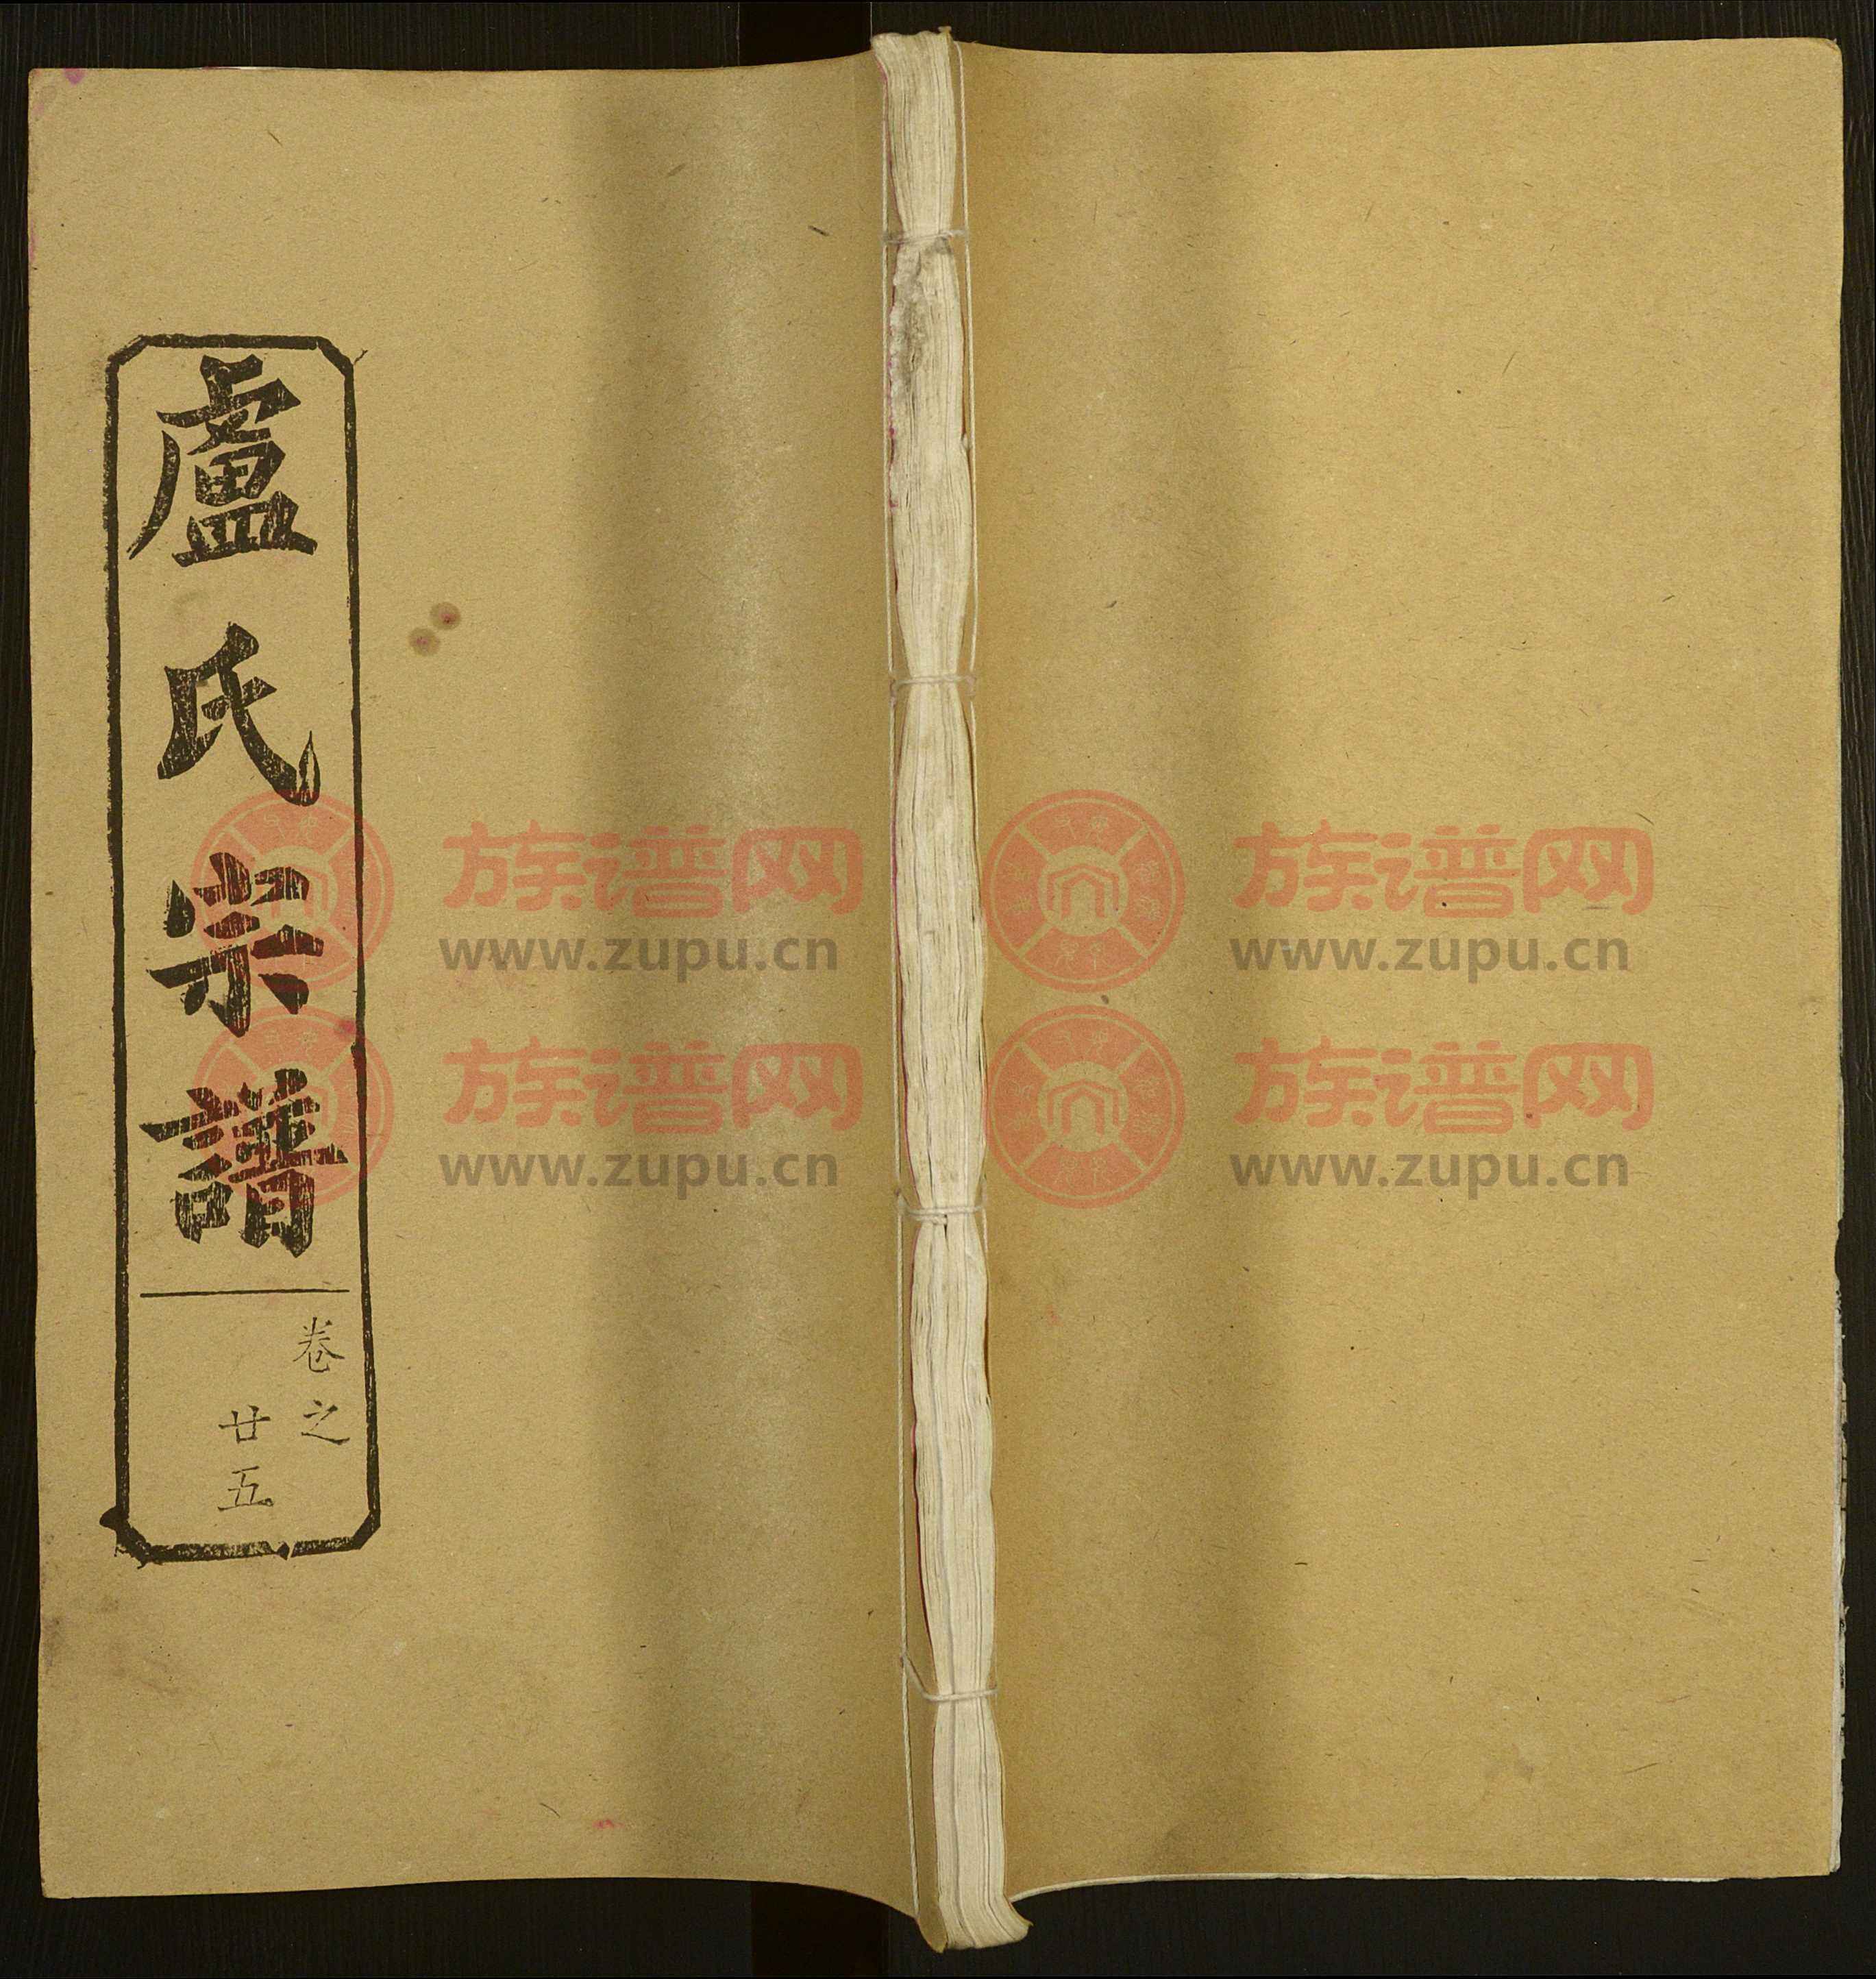 盧氏宗譜
卷之
廿五
族谱网
www.zupu.cn
族谱网
www.zupu.cn
族谱网
www.zupu.cn
族谱网
www.zupu.cn